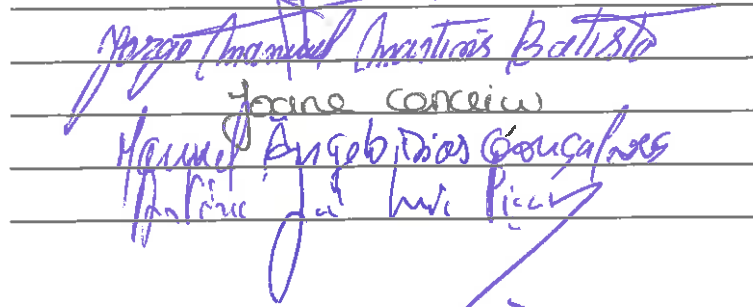 Jorge Manuel Martins Batista
Joana Conceiu
Manuel Ângelo Dias Gonçalves
José Luis